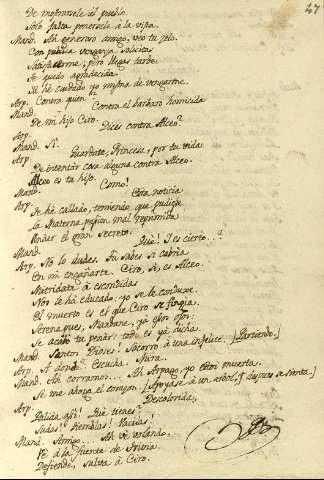 27
De mostrarele al pueblo.
Solo falta ponersele a la vista.
Mand. Ah generoso amigo, veo tu zelo.
Con puntual venganza solicita
Satisfacerme; pero llegas tarde.
Te quedo agradecida.
Ya he cuidado yo misma de vengarme.
Arp. Contra quien?
Mand. Contra el barbaro homicida
De mi hijo Ciro.
Arp. Dices contra Alceo?
Mand. Si.
Arp. Guardate, Princesa, por tu vida
De intentar cosa alguna contra Alceo.
Alceo es tu hijo.
Mand. Como!
Arp. Esta noticia
Te he callado, temiendo que pudiese
La Materna pasion mal reprimida
Vender el gran secreto.
Mand. Què! I es cierto..?
Arp. No lo dudes. Tu sabes si cabria
En mi engañarte. Ciro, si, es Alceo.
Mitridate à escondidas
Nos le ha educado: yo se le conduxe.
El muerto es el que Ciro se fingia.
Serena pues, Mandane, ya esos ojos:
Se acabò tu penar: todo es ya dicha.
Mand. Santos Dioses! Socorro à una infelice. [Partiendo.]
Arp. A donde? Escucha. Mira.
Mand. Ah corramos... Ah Arpago, yo estoi muerta.
Se me ahoga el corazon. [Apoyase à un arbol, y despues se sienta.]
Arp. Descolorida,
Palida asi! Què tienes?
Sudas! Tiemblas! Vacilas!
Mand. Amigo... Ah vè volando.
Vè à la fuente de Trivia.
Defiende, salva à Ciro.